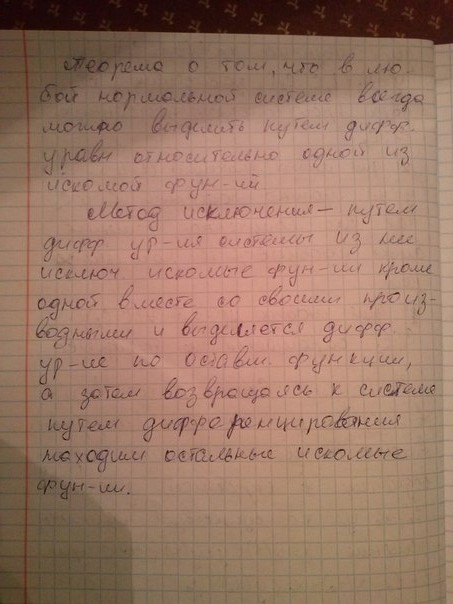 Теорема о том, что в лю-
бой нормальной системе всегда
можно выделить путем дифф.
уравн относительно одной из
искомой фун-ий
Метод исключения – путем
дифф ур-ия системы из нее
исключ искомые фун-ии кроме
одной вместе со своими произ-
водными и выделяется дифф.
ур-ие по оставш. функции,
а затем возвращаясь к системе
путем дифференцирования
находим остальные искомые
фун-ии.